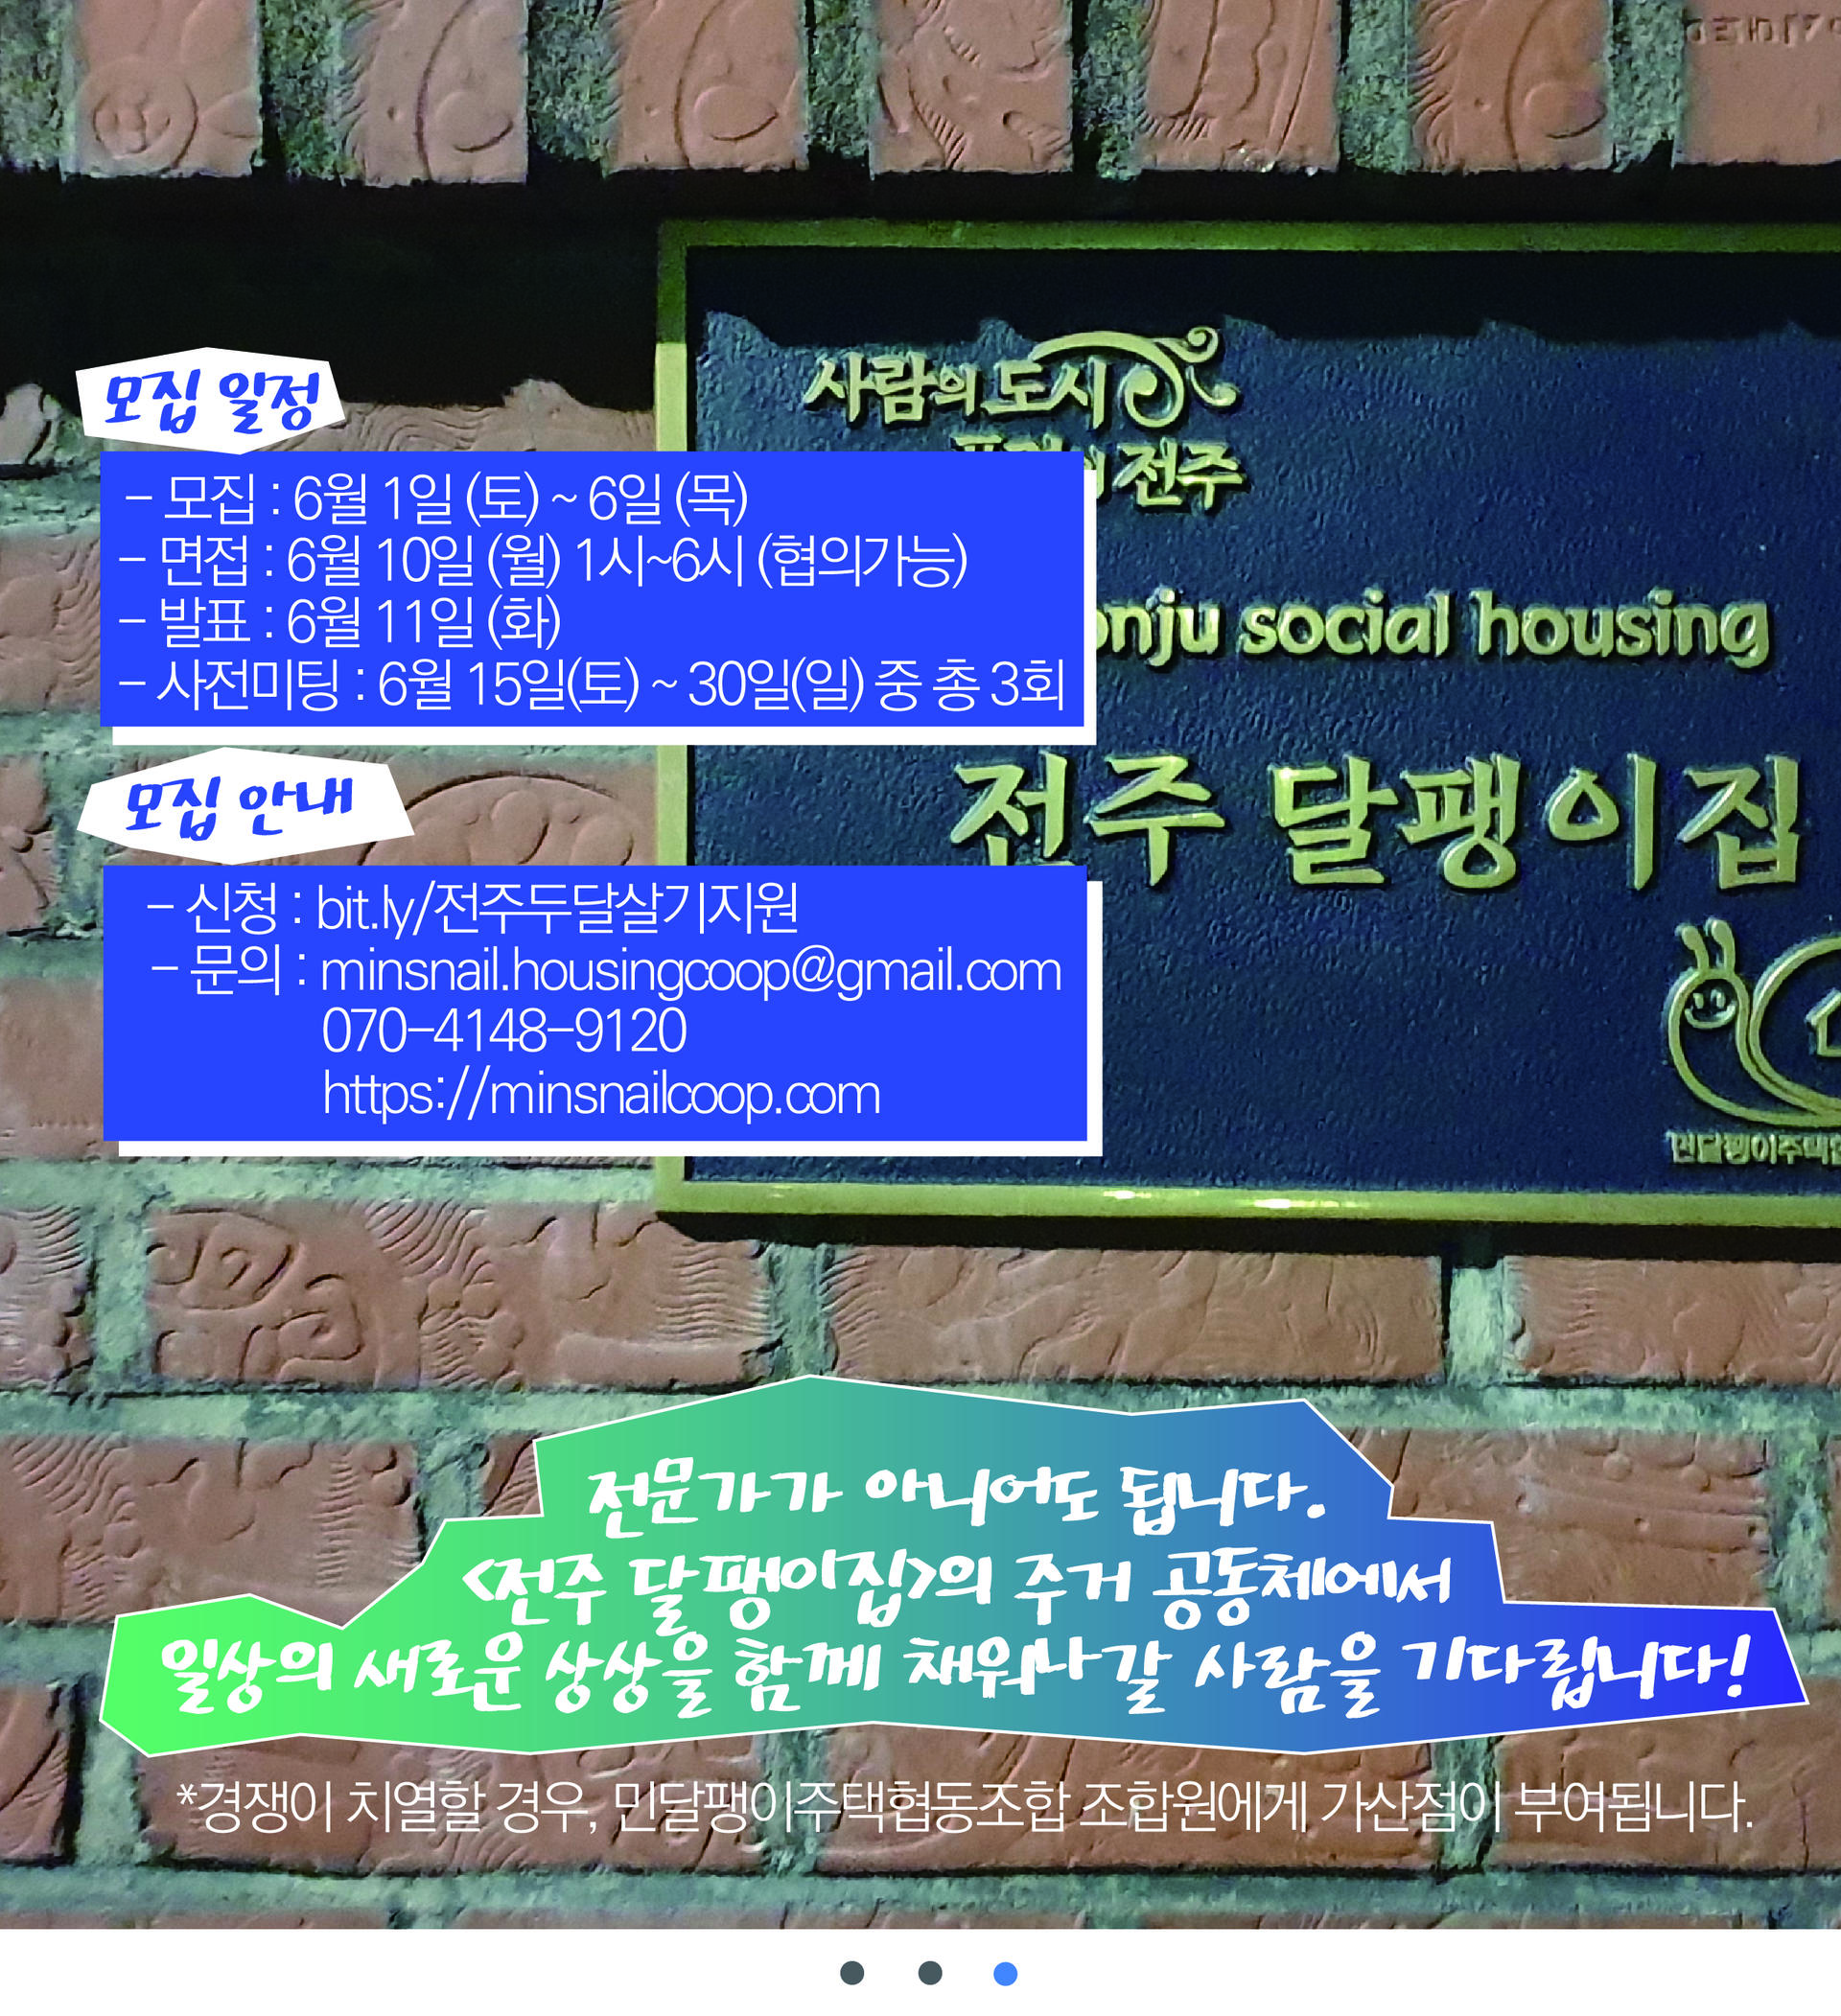 사람의 도시
전주
모집 일정
- 모집 : 6월 1일 (토) ~ 6일 (목)
- 면접 : 6월 10일 (월) 1시~6시 (협의가능)
- 발표 : 6월 11일 (화)
- 사전미팅 : 6월 15일(토) ~ 30일(일) 중 총 3회
social housing
전주 달팽이집
모집 안내
- 신청 : bit.ly/전주두달살기지원
- 문의 : minsnail.housingcoop@gmail.com
070-4148-9120
https://minsnailcoop.com
전문가가 아니어도 됩니다.
<전주 달팽이집>의 주거 공동체에서
일상의 새로운 상상을 함께 채워나갈 사람을 기다립니다!
*경쟁이 치열할 경우, 민달팽이주택협동조합 조합원에게 가산점이 부여됩니다.